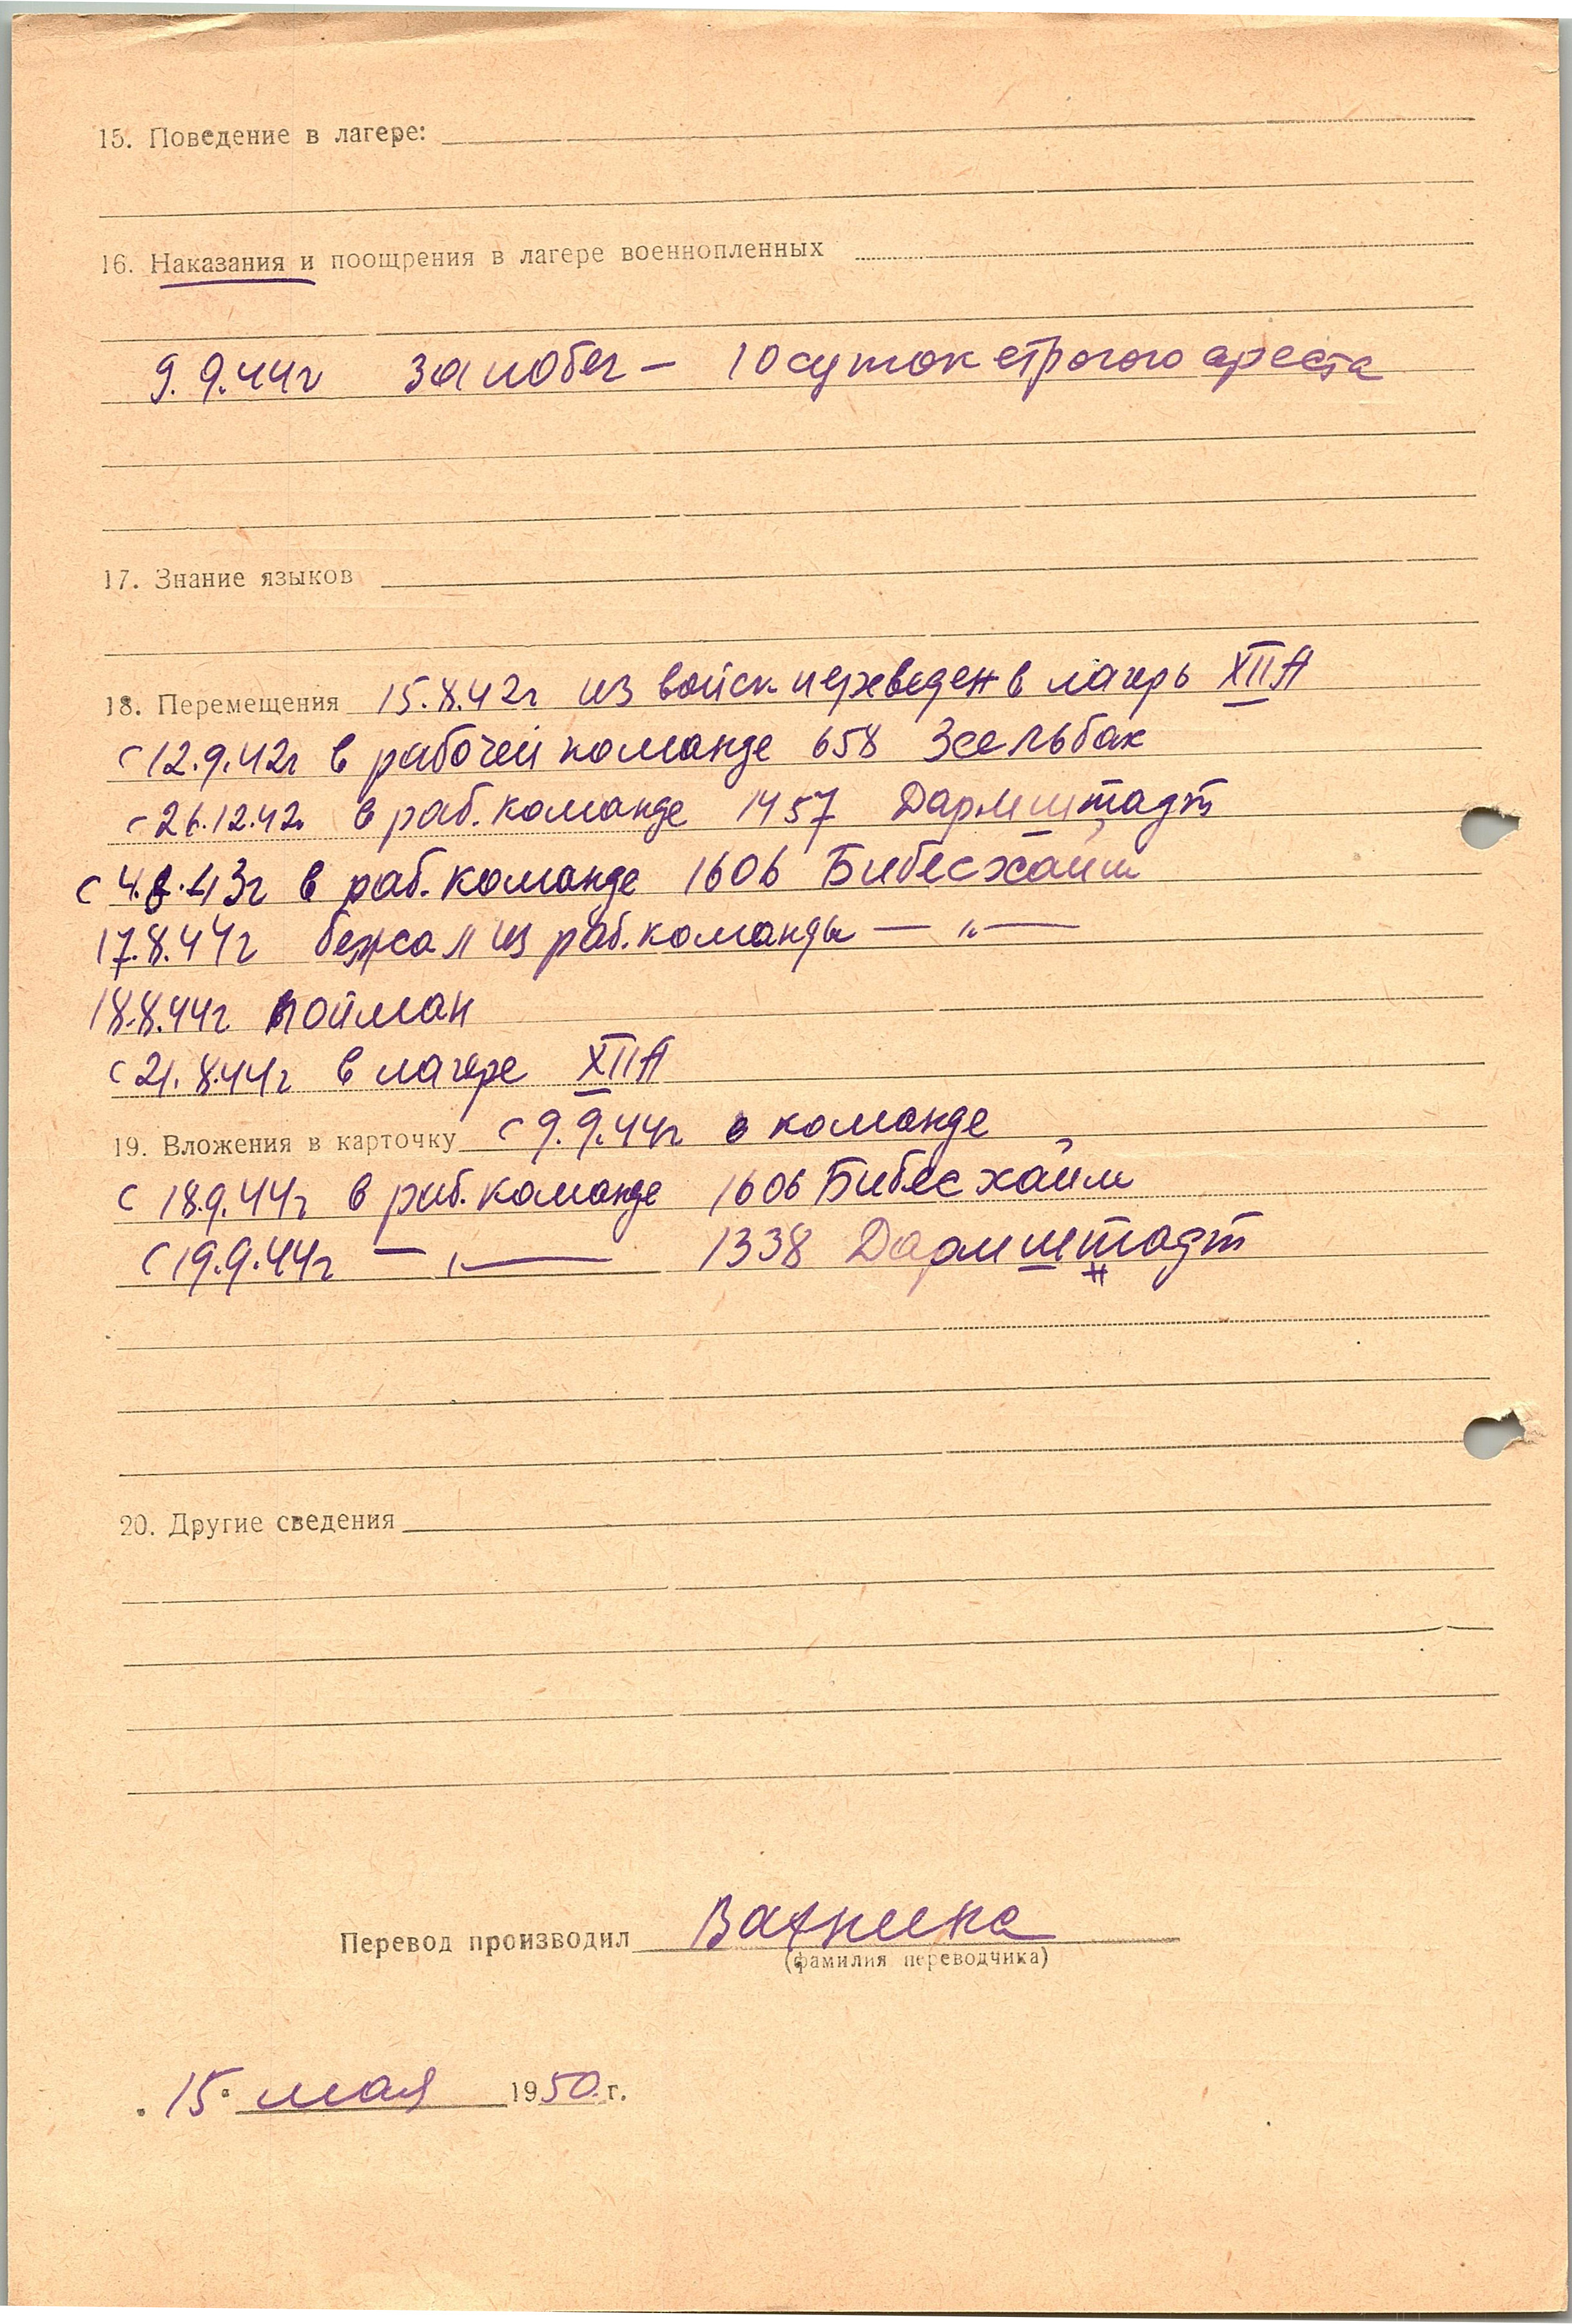 15. Поведение в лагере:
16. Наказания и поощрения в лагере военнопленных
9.9.44г за побег — 10 суток строгого ареста
17. Знание языков
18. Перемещения 15.8.42г из войск переведен в лагерь XIIА
с 12.9.42г в рабочей команде 658 Зсельбах
с 26.12.42г в раб. команде 1457 Дармштадт
с 4.8.43г в раб. команде 1606 Бибесхайм
17.8.44г бежал из раб. команды — „ —
18.8.44г пойман
с 21.8.44г в лагере XIIА
19. Вложения в карточку с 9.9.44г в команде
с 18.9.44г в раб. команде 1606 Бибесхайм
с 19.9.44г — „ — 1338 Дармштадт
20. Другие сведения
Перевод производил
(фамилия переводчика)
15 мая 1950 г.